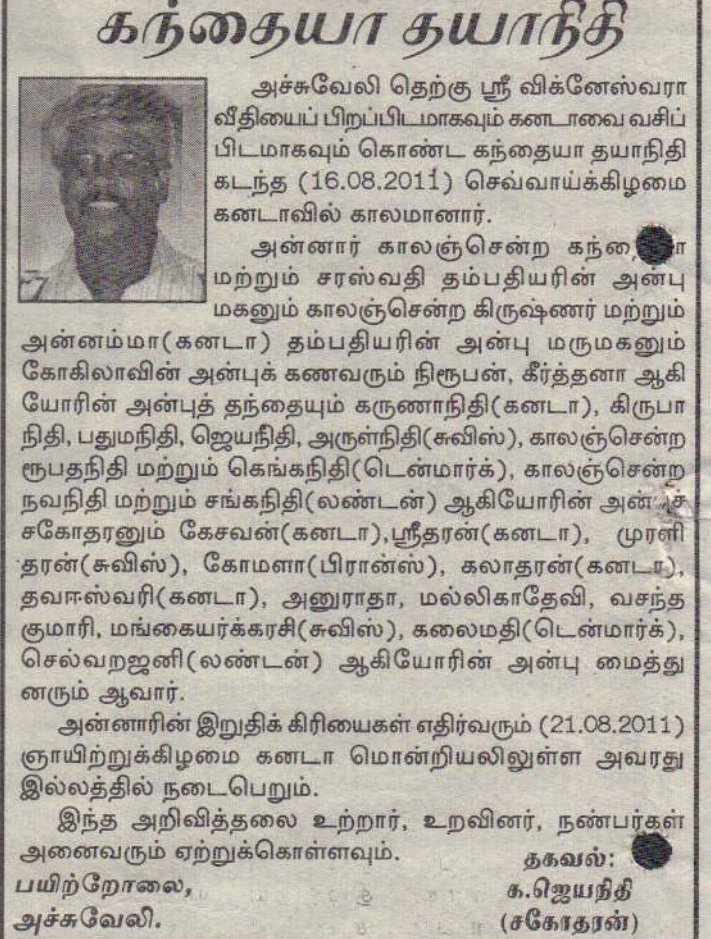 கந்தையா தயாநிதி
அச்சுவேலி தெற்கு ஸ்ரீ விக்னேஸ்வரா
வீதியைப் பிறப்பிடமாகவும் கனடாவை வசிப்
பிடமாகவும் கொண்ட கந்தையா தயாநிதி
கடந்த (16.08.2011) செவ்வாய்க்கிழமை
கனடாவில் காலமானார்.
அன்னார் காலஞ்சென்ற
மற்றும் சரஸ்வதி தம்பதியரின் அன்பு
மகனும் காலஞ்சென்ற கிருஷ்ணர் மற்றும்
அன்னம்மா(கனடா) தம்பதியரின் அன்பு மருமகனும்
கோகிலாவின் அன்புக் கணவரும் நிரூபன், கீர்த்தனா ஆகி
யோரின் அன்புத் தந்தையும் கருணாநிதி(கனடா), கிருபா
நிதி, பதுமநிதி, ஜெயநிதி, அருள்நிதி(சுவிஸ்), காலஞ்சென்ற
ரூபதநிதி மற்றும் கெங்கநிதி(டென்மார்க்), காலஞ்சென்ற
நவநிதி மற்றும் சங்கநிதி(லண்டன்) ஆகியோரின்
சகோதரனும் கேசவன்(கனடா),ஸ்ரீதரன்(கனடா), முரளி
தரன்(சுவிஸ்), கோமளா(பிரான்ஸ்), கலாதரன்(கனடா),
தவஈஸ்வரி(கனடா), அனுராதா, மல்லிகாதேவி, வசந்த
குமாரி, மங்கையர்க்கரசி(சுவிஸ்), கலைமதி(டென்மார்க்),
செல்வறஜனி(லண்டன்) ஆகியோரின் அன்பு மைத்து
னரும் ஆவார்.
அன்னாரின் இறுதிக் கிரியைகள் எதிர்வரும் (21.08.2011)
ஞாயிற்றுக்கிழமை கனடா மொன்றியலிலுள்ள அவரது
இல்லத்தில் நடைபெறும்.
இந்த அறிவித்தலை உற்றார், உறவினர், நண்பர்கள்
அனைவரும் ஏற்றுக்கொள்ளவும்.
தகவல்:
பயிற்றோலை,
க.ஜெயநிதி
அச்சுவேலி.
(சகோதரன்)